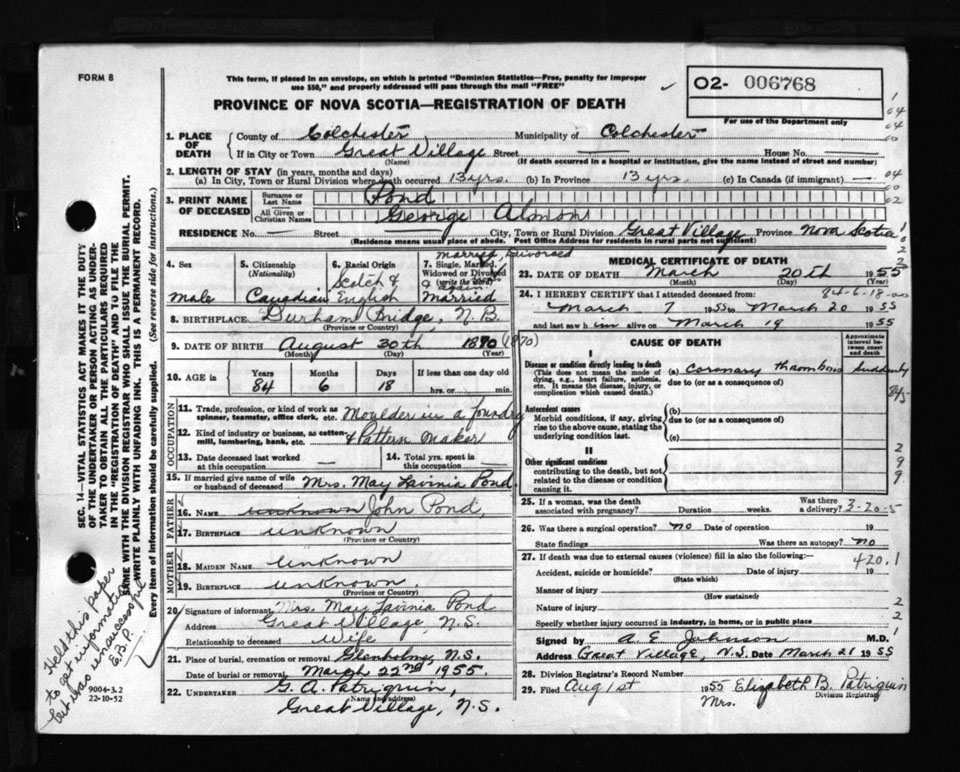 FORM 8
This form, if placed in an envelope, on which is printed "Dominion Statistics—Free, penalty for improper
use $50," and properly addressed will pass through the mail "FREE"
PROVINCE OF NOVA SCOTIA—REGISTRATION OF DEATH
O2- 006768
For use of the Department only
1. PLACE OF DEATH County of Colchester Municipality of Colchester
If in City or Town Great Village Street House No.
(Name) (If death occurred in a hospital or institution, give the name instead of street and number)
2. LENGTH OF STAY (in years, months and days)
(a) In City, Town or Rural Division where death occurred 13 yrs. (b) In Province 13 yrs. (c) In Canada (if immigrant) —
3. PRINT NAME OF DECEASED Surname or Last Name Pond
All Given or Christian Names George Almon
RESIDENCE No. — Street City, Town or Rural Division Great Village Province Nova Scotia
(Residence means usual place of abode. Post Office Address for residents in rural parts not sufficient)
4. SEX Male
5. CITIZENSHIP (Nationality) Canadian
6. Racial Origin Scotch & English
7. Single, Married, Widowed or Divorced (write the word) Married, Divorced & again Married
8. BIRTHPLACE Durham Bridge, N.B.
(Province or Country)
9. DATE OF BIRTH August 30th 1870 (1870)
(Month) (Day) (Year)
10. AGE in Years Months Days If less than one day
84 6 18 hrs. or min.
OCCUPATION
11. Trade, profession, or kind of work as spinner, teamster, office clerk, etc. Moulder in a foundry
12. Kind of industry or business, as cotton-mill, lumbering, bank, etc. & Pattern Maker
13. Date deceased last worked at this occupation —
14. Total yrs. spent in this occupation —
15. If married give name of wife or husband of deceased Mrs. May Lavinia Pond
FATHER
16. NAME unknown John Pond
17. BIRTHPLACE unknown
(Province or Country)
MOTHER
18. MAIDEN NAME unknown
19. BIRTHPLACE unknown.
(Province or Country)
20. Signature of informant Mrs. May Lavinia Pond
Address Great Village, N.S.
Relationship to deceased Wife
21. Place of burial, cremation or removal Glenholme, N.S.
Date of burial or removal March 22nd 1955.
22. UNDERTAKER G. A. Patriquin,
(Name and address)
Great Village, N.S.
MEDICAL CERTIFICATE OF DEATH
23. DATE OF DEATH March 20th 1955
(Month) (Day)
84-6-18
24. I HEREBY CERTIFY that I attended deceased from:
March 7 1955 to March 20 1955
and last saw him alive on March 19 1955
CAUSE OF DEATH
Approximate interval between onset and death
I
Disease or condition directly leading to death (a) coronary thrombosis suddenly
(This does not mean the mode of dying, e.g., heart failure, asthenia, etc. It means the disease, injury, or complication which caused death.)
due to (or as a consequence of)
Antecedent causes (b)
Morbid conditions, if any, giving rise to the above cause, stating the underlying condition last.
due to (or as a consequence of)
(c)
II
Other significant conditions
contributing to the death, but not related to the disease or condition causing it.
25. If a woman, was the death associated with pregnancy? Duration weeks. Was there a delivery?
3-20-5
26. Was there a surgical operation? no Date of operation 19
State findings Was there an autopsy? no
27. If death was due to external causes (violence) fill in also the following:—
420.1
Accident, suicide or homicide? Date of injury 19
(State which)
Manner of injury
(How sustained)
Nature of injury
Specify whether injury occurred in industry, in home, or in public place
Signed by A. E. Johnson M.D.
Address Great Village, N.S. Date March 21 1955
28. Division Registrar's Record Number
29. Filed Aug 1st 1955 Mrs. Elizabeth B. Patriquin
Division Registrar
SEC. 14—VITAL STATISTICS ACT MAKES IT THE DUTY
OF THE UNDERTAKER OR PERSON ACTING AS UNDER-
TAKER TO OBTAIN ALL THE PARTICULARS REQUIRED
IN THE "REGISTRATION OF DEATH" AND TO FILE THE
SAME WITH THE DIVISION REGISTRAR WHO SHALL ISSUE THE BURIAL PERMIT.
WRITE PLAINLY WITH UNFADING INK. THIS IS A PERMANENT RECORD.
Every item of information should be carefully supplied. (See reverse side for instructions.)
Held this paper
to get information
but was unsuccessful
E.B.P.
9004-3.2
22-10-52